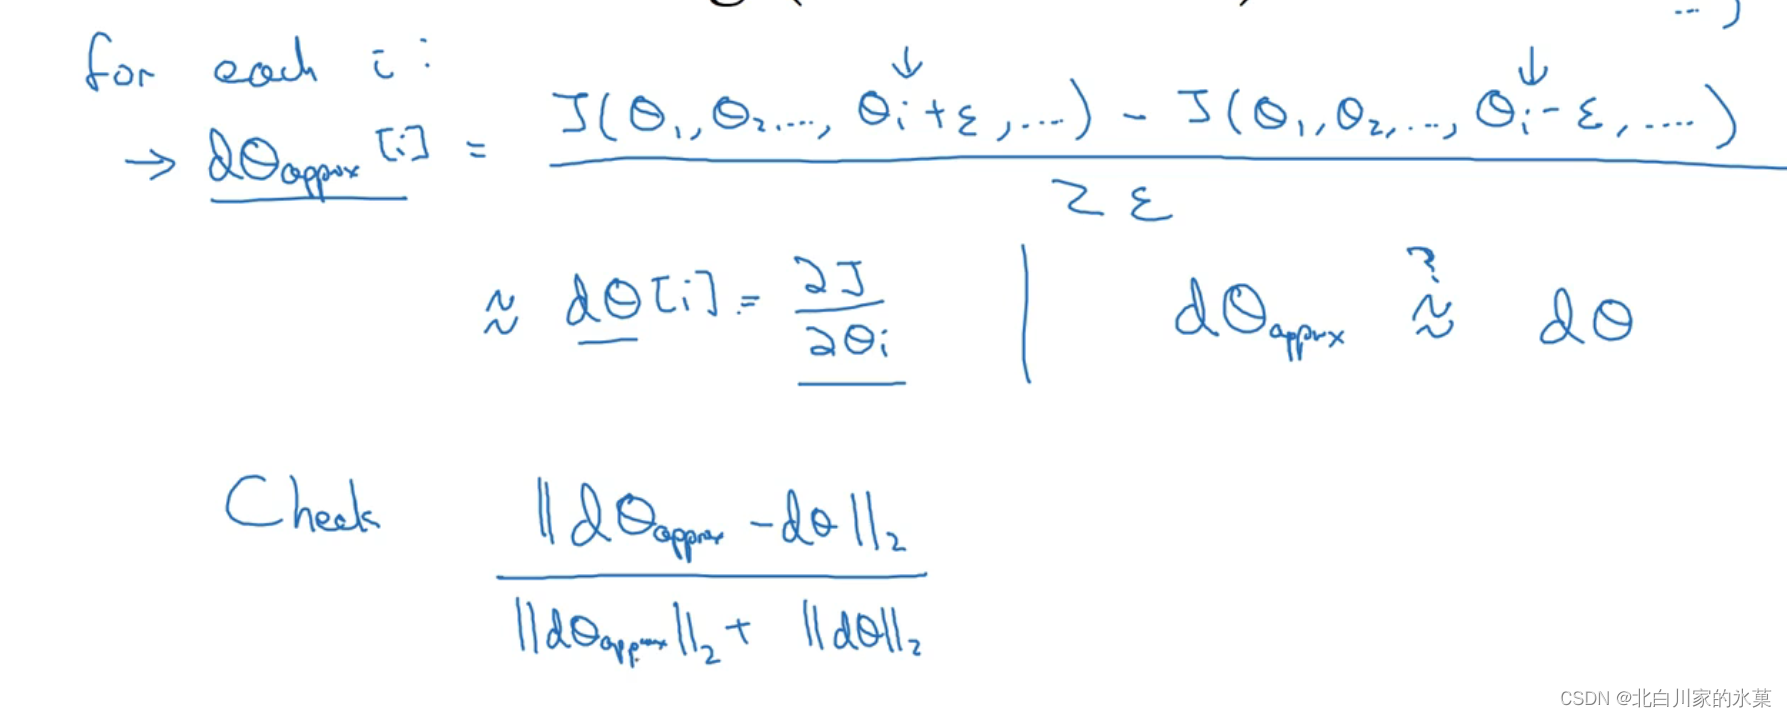 ... )
for each i :
↓ ↓
→ dθapprox [i] = J(θ₁, θ₂, ..., θᵢ + ε, ...) - J(θ₁, θ₂, ..., θᵢ - ε, ...)
2ε
≈ dθ[i] = ∂J / ∂θᵢ | dθapprox ≈? dθ
Check ||dθapprox - dθ||₂
||dθapprox||₂ + ||dθ||₂
CSDN @北白川家的氷菓